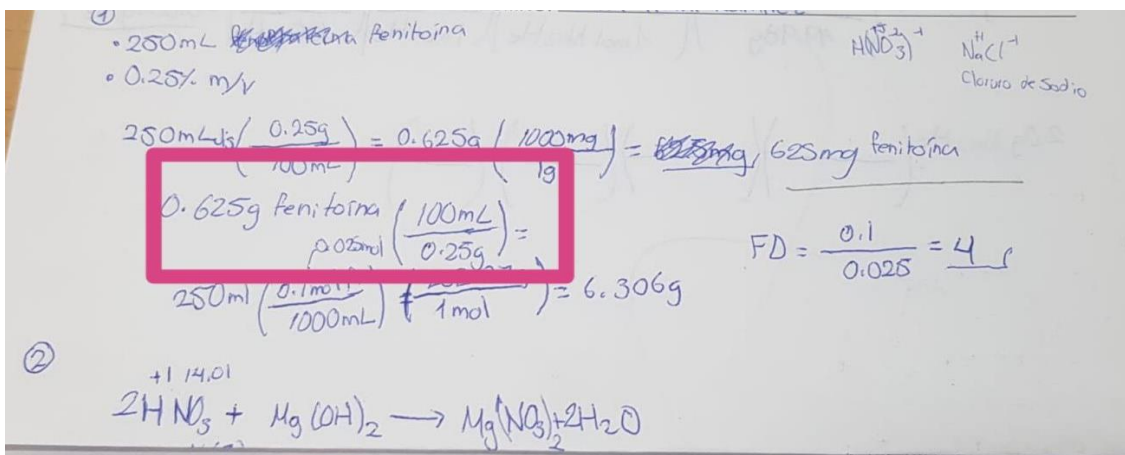 ①
• 250 mL fenitoína
• 0.25% m/v
H(NO₃)⁻¹ NaCl⁻¹
Cloruro de Sodio
250 mL dis (0.25g / 100mL) = 0.625g (1000mg / 1g) = 625mg fenitoína
0.625g fenitoína (100mL / 0.25g) =
0.025mol
FD = 0.1 / 0.025 = 4
250ml (0.1mol / 1000mL) ( / 1mol) = 6.306g
②
+1 14.01
2HNO₃ + Mg(OH)₂ → Mg(NO₃)₂+2H₂O